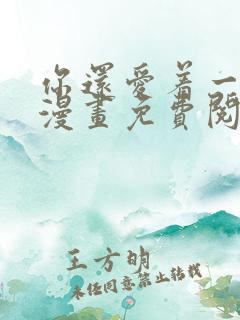 你還愛着一
漫畫免費閱
王方明
未经同意禁止转载